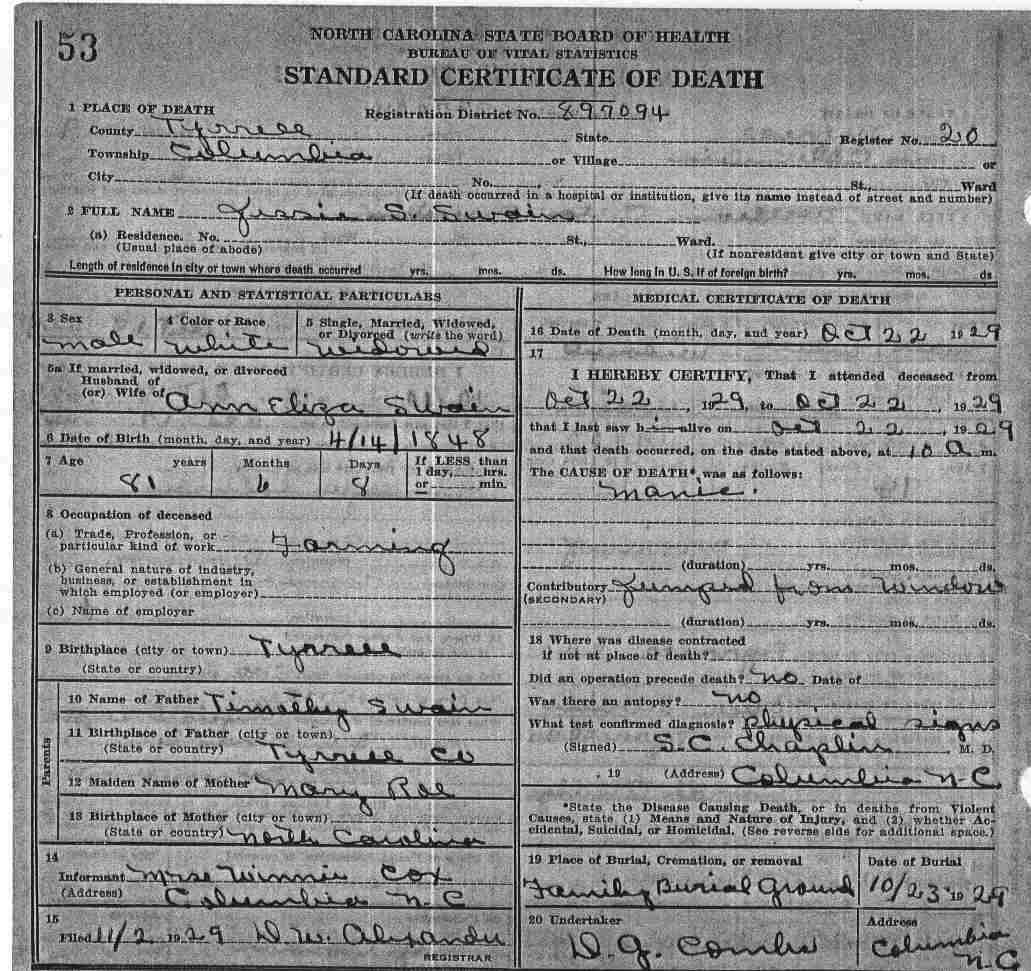 53
NORTH CAROLINA STATE BOARD OF HEALTH
BUREAU OF VITAL STATISTICS
STANDARD CERTIFICATE OF DEATH
1 PLACE OF DEATH
Registration District No. 897094
County Tyrrell State Register No. 20
Township Columbia or Village or
City No. , St., Ward
(If death occurred in a hospital or institution, give its name instead of street and number)
2 FULL NAME Jessie S. Swain
(a) Residence. No. St., Ward.
(Usual place of abode) (If nonresident give city or town and State)
Length of residence in city or town where death occurred yrs. mos. ds. How long in U. S. if of foreign birth? yrs. mos. ds
PERSONAL AND STATISTICAL PARTICULARS
3 Sex 4 Color or Race 5 Single, Married, Widowed,
or Divorced (write the word)
male white widowed
5a If married, widowed, or divorced
Husband of
(or) Wife of Ann Eliza Swain
6 Date of Birth (month, day, and year) 4/14/1848
7 Age years Months Days If LESS than
1 day, hrs.
or min.
81 6 8
8 Occupation of deceased
(a) Trade, Profession, or
particular kind of work Farming
(b) General nature of industry,
business, or establishment in
which employed (or employer)
(c) Name of employer
9 Birthplace (city or town) Tyrrell
(State or country)
Parents
10 Name of Father Timothy Swain
11 Birthplace of Father (city or town)
(State or country) Tyrrell Co
12 Maiden Name of Mother Mary Roe
13 Birthplace of Mother (city or town)
(State or country) North Carolina
14
Informant Mrse Winnie Cox
(Address) Columbia N. C
15
Filed 11/2 1929 D. W. Alexander
REGISTRAR
MEDICAL CERTIFICATE OF DEATH
16 Date of Death (month, day, and year) Oct 22 1929
17
I HEREBY CERTIFY, That I attended deceased from
Oct 22 , 1929, to Oct 22 , 1929
that I last saw h i alive on Oct 22 , 1929
and that death occurred, on the date stated above, at 10 a m.
The CAUSE OF DEATH*, was as follows:
Manie.
(duration) yrs. mos. ds.
Contributory Jumped from window
(SECONDARY)
(duration) yrs. mos. ds.
18 Where was disease contracted
if not at place of death?
Did an operation precede death? no Date of
Was there an autopsy? no
What test confirmed diagnosis? physical signs
(Signed) S. C. Chaplin M. D.
, 19 (Address) Columbia N-C
*State the Disease Causing Death, or in deaths from Violent
Causes, state (1) Means and Nature of Injury, and (2) whether Ac-
cidental, Suicidal, or Homicidal. (See reverse side for additional space.)
19 Place of Burial, Cremation, or removal Date of Burial
Family Burial Ground 10/23 1929
20 Undertaker Address
D. G. Combs Columbia
N-C